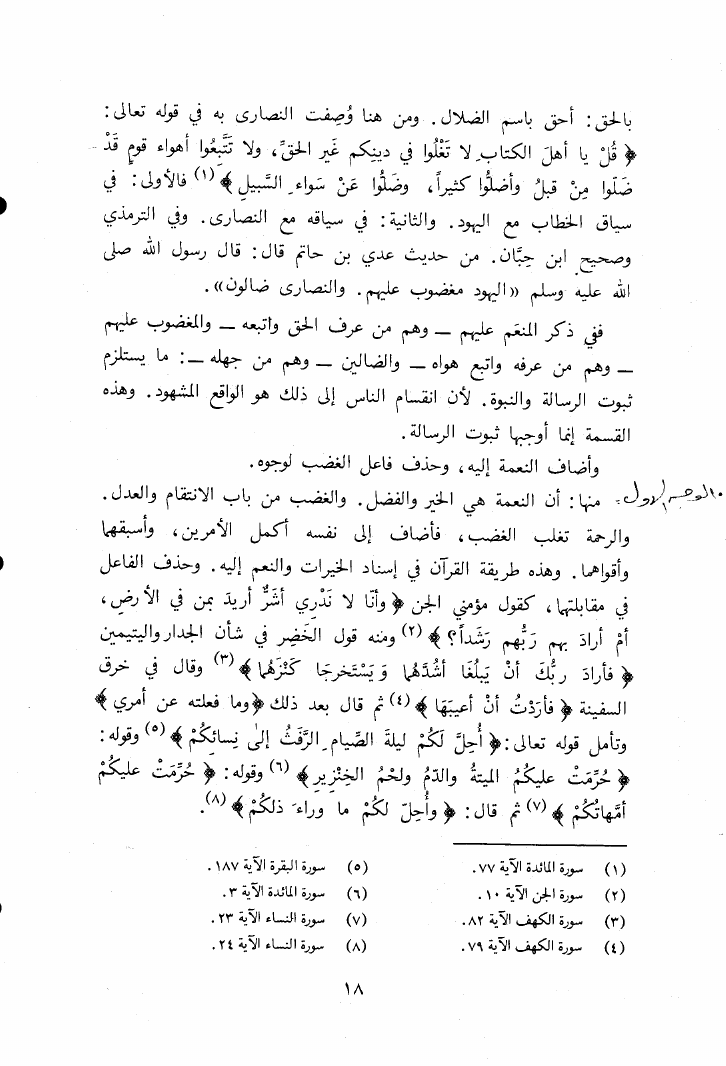 بالحق: أحق باسم الضلال. ومن هنا وُصِفت النصارى به في قوله تعالى:
﴿ قُلْ يا أهلَ الكتابِ لا تَغْلُوا في دينكم غَير الحقِّ، ولا تَتَّبِعُوا أهواء قومٍ قَدْ
ضَلّوا مِنْ قبلُ وأضلُّوا كثيراً، وضَلُّوا عَنْ سَواءِ السَّبيلِ ﴾(١) فالأولى: في
سياق الخطاب مع اليهود. والثانية: في سياقه مع النصارى. وفي الترمذي
وصحيح ابن حِبَّان. من حديث عدي بن حاتم قال: قال رسول الله صلى
الله عليه وسلم «اليهود مغضوب عليهم. والنصارى ضالون».
ففي ذكر المنعَم عليهم ــ وهم من عرف الحق واتبعه ــ والمغضوب عليهم
ــ وهم من عرفه واتبع هواه ــ والضالين ــ وهم من جهله ــ: ما يستلزم
ثبوت الرسالة والنبوة. لأن انقسام الناس إلى ذلك هو الواقع المشهود. وهذه
القسمة إنما أوجبها ثبوت الرسالة.
وأضاف النعمة إليه، وحذف فاعل الغضب لوجوه.
الوجه الأول
منها: أن النعمة هي الخير والفضل. والغضب من باب الانتقام والعدل.
والرحمة تغلب الغضب، فأضاف إلى نفسه أكمل الأمرين، وأسبقهما
وأقواهما. وهذه طريقة القرآن في إسناد الخيرات والنعم إليه. وحذف الفاعل
في مقابلتها، كقول مؤمني الجن ﴿ وأنّا لا نَدْرِي أشَرٌّ أريدَ بمن في الأرضِ،
أمْ أرادَ بهم رَبُّهم رَشَداً؟ ﴾(٢) ومنه قول الخَضِر في شأن الجدار واليتيمين
﴿ فأرادَ ربُّكَ أنْ يَبلُغَا أشُدَّهُما وَيَسْتَخرجَا كَنْزَهُما ﴾(٣) وقال في خرق
السفينة ﴿ فأرَدْتُ أنْ أعيبَهَا ﴾(٤) ثم قال بعد ذلك ﴿وما فعلته عن أمري ﴾
وتأمل قوله تعالى: ﴿ أُحِلَّ لَكُمْ ليلةَ الصِّيامِ الرَّفَثُ إلىٰ نِسائكُمْ ﴾(٥) وقوله:
﴿ حُرِّمَتْ عليكُمُ الميتةُ والدّمُ ولحْمُ الخِنْزِيرِ ﴾(٦) وقوله: ﴿ حُرِّمَتْ عليكُمْ
أمَّهاتُكُمْ ﴾(٧) ثم قال: ﴿ وأُحِلّ لكُمْ ما وراءَ ذلكُمْ ﴾(٨).
(١) سورة المائدة الآية ٧٧.
(٢) سورة الجن الآية ١٠.
(٣) سورة الكهف الآية ٨٢.
(٤) سورة الكهف الآية ٧٩.
(٥) سورة البقرة الآية ١٨٧.
(٦) سورة المائدة الآية ٣.
(٧) سورة النساء الآية ٢٣.
(٨) سورة النساء الآية ٢٤.
١٨